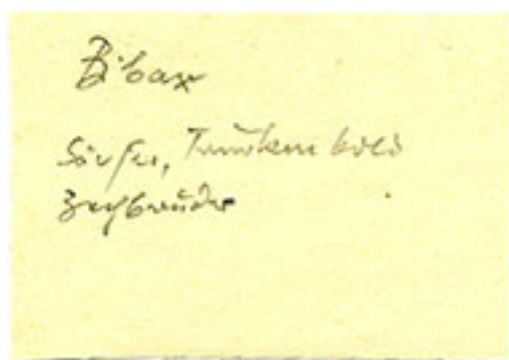 Bibax
Säufer, Trunkenbold
Zechbruder